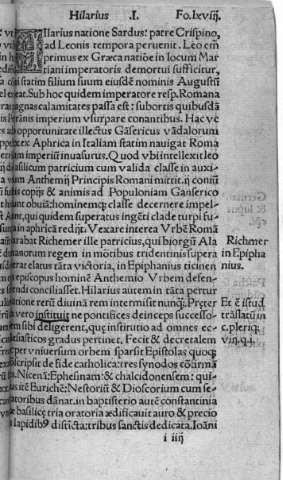 Hilarius .I. Fo.lxviij.
Hilarius natione Sardus: patre Crispino,
ad Leonis tempora peruenit. Leo em̃
primus ex Græca natiõe in locum Mar
tiani imperatoris demortui sufficitur,
statim filium suum eiusdẽ nominis Augustũ
resp. Sub hoc quidem imperatore resp. Romana
magnas calamitates passa est: subortis quibusdã
imperium vsurpare conantibus. Hac
opportunitate illectus Gẽsericus vãdalorum
rex ex Aphrica in Italiam statim nauigat Roma
imperiũ inuasurus. Quod vbi intellexit leo
Basilicum patricium cum valida classe in auxi
Anthemij Principis Romani mittit. ij coniũ
copijs & animis ad Populoniam Ganserico
obuiã: hominemqꝫ classe decernere impel-
qui quidem superatus ingẽti clade turpi fu-
in Aphricã redijt. Vexare interea Vrbẽ Romã
Richemer ille patricius, qui biorgũ Ala
regem in mõtibus tridentinis supera
elatus tãta victoria, in Epiphanius ticinen
episcopus hominẽ Anthemio Vrbem defen-
conciliasset. Hilarius autem in tãta pertur
rerũ diuinã rem intermisit nunqᷓ. Preter
vero instituit ne pontifices deinceps successo-
sibi deligerent, quę institutio ad omnes ec-
gradus pertinet. Fecit & decretalem
per vniuersum orbem sparsit Epistolas quoqꝫ
scripsit de fide catholica: tres synodos cõfirma
Nicenã: Ephesinam: & chalcidonensem: qui-
Eutichẽ: Nestoriũ & Dioscorum cum se-
dãnat. in baptisterio autẽ constantinia
basilicę tria oratoria ædificauit auro & precio
lapidibꝰ distĩcta: tribus sanctis dedicata. Ioãni
i iiij
Richemer
in Epipha
nius.
Et ẽ istud
trãslatũ in
c. pleriqꝫ.